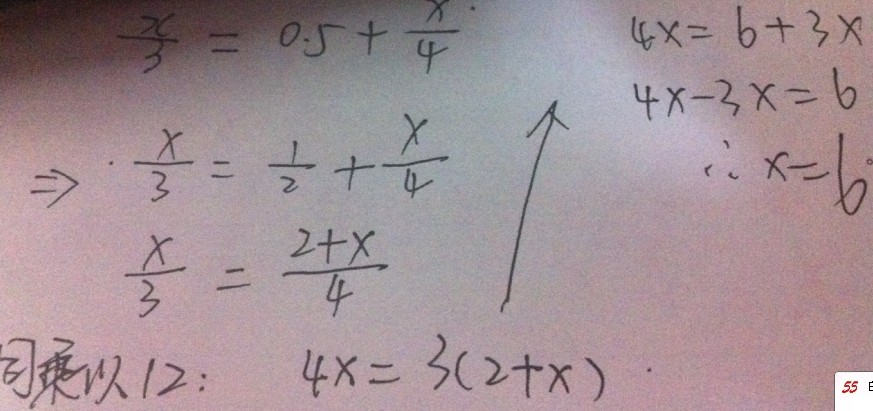 x/3 = 0.5 + x/4
⇒ x/3 = 1/2 + x/4
x/3 = (2+x)/4
同乘以12: 4x = 3(2+x)
4x = 6 + 3x
4x - 3x = 6
∴ x = 6
55